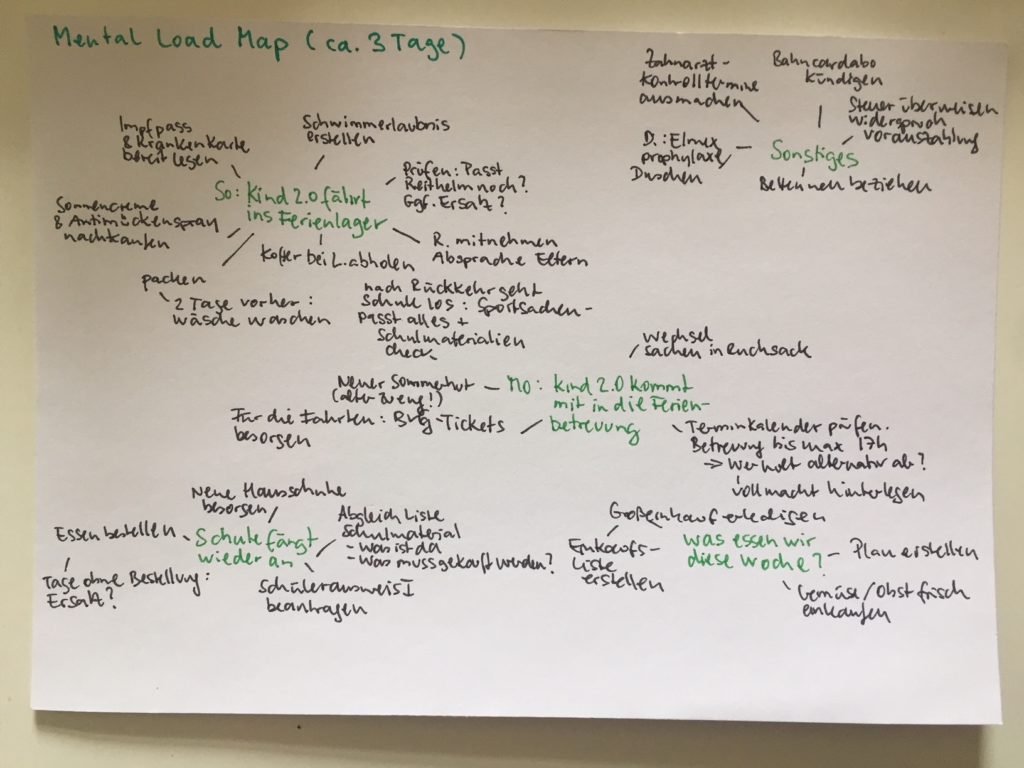 Mental Load Map (ca. 3 Tage)
Impfpass
& Krankenkarte
bereit legen
Schwimmerlaubnis
erstellen
Prüfen: Passt
Reithelm noch?
Ggf. Ersatz?
So: Kind 2.0 fährt
ins Ferienlager
Sonnencreme
& Antimückenspray
nachkaufen
Koffer bei L. abholen
R. mitnehmen
Absprache Eltern
packen
2 Tage vorher:
wäsche waschen
nach Rückkehr geht
Schule los: Sportsachen-
passt alles +
Schulmaterialien
check
Zahnarzt-
Kontrolltermine
ausmachen
Bahncardabo
kündigen
Steuer überweisen
widerspruch
vorauszahlung
D.: Elmex
prophylaxe
Duschen
Sonstiges
Betten neu beziehen
Wechsel
sachen in Rucksack
Neuer Sommerhut
(alter zu eng!)
Mo: Kind 2.0 kommt
mit in die Ferien-
betreuung
Für die Fahrten: BVG-Tickets
besorgen
Terminkalender prüfen.
Betreuung bis max 17h
→ Wer holt alternativ ab?
vollmacht hinterlegen
Neue Hausschuhe
besorgen
Essen bestellen
Schule fängt
wieder an
Abgleich Liste
Schulmaterial
- was ist da
- was muss gekauft werden?
Tage ohne Bestellung:
Ersatz?
Schülerausweis I
beantragen
Großeinkauf erledigen
Einkaufs-
liste
erstellen
was essen wir
diese Woche?
Plan erstellen
Gemüse/Obst frisch
einkaufen